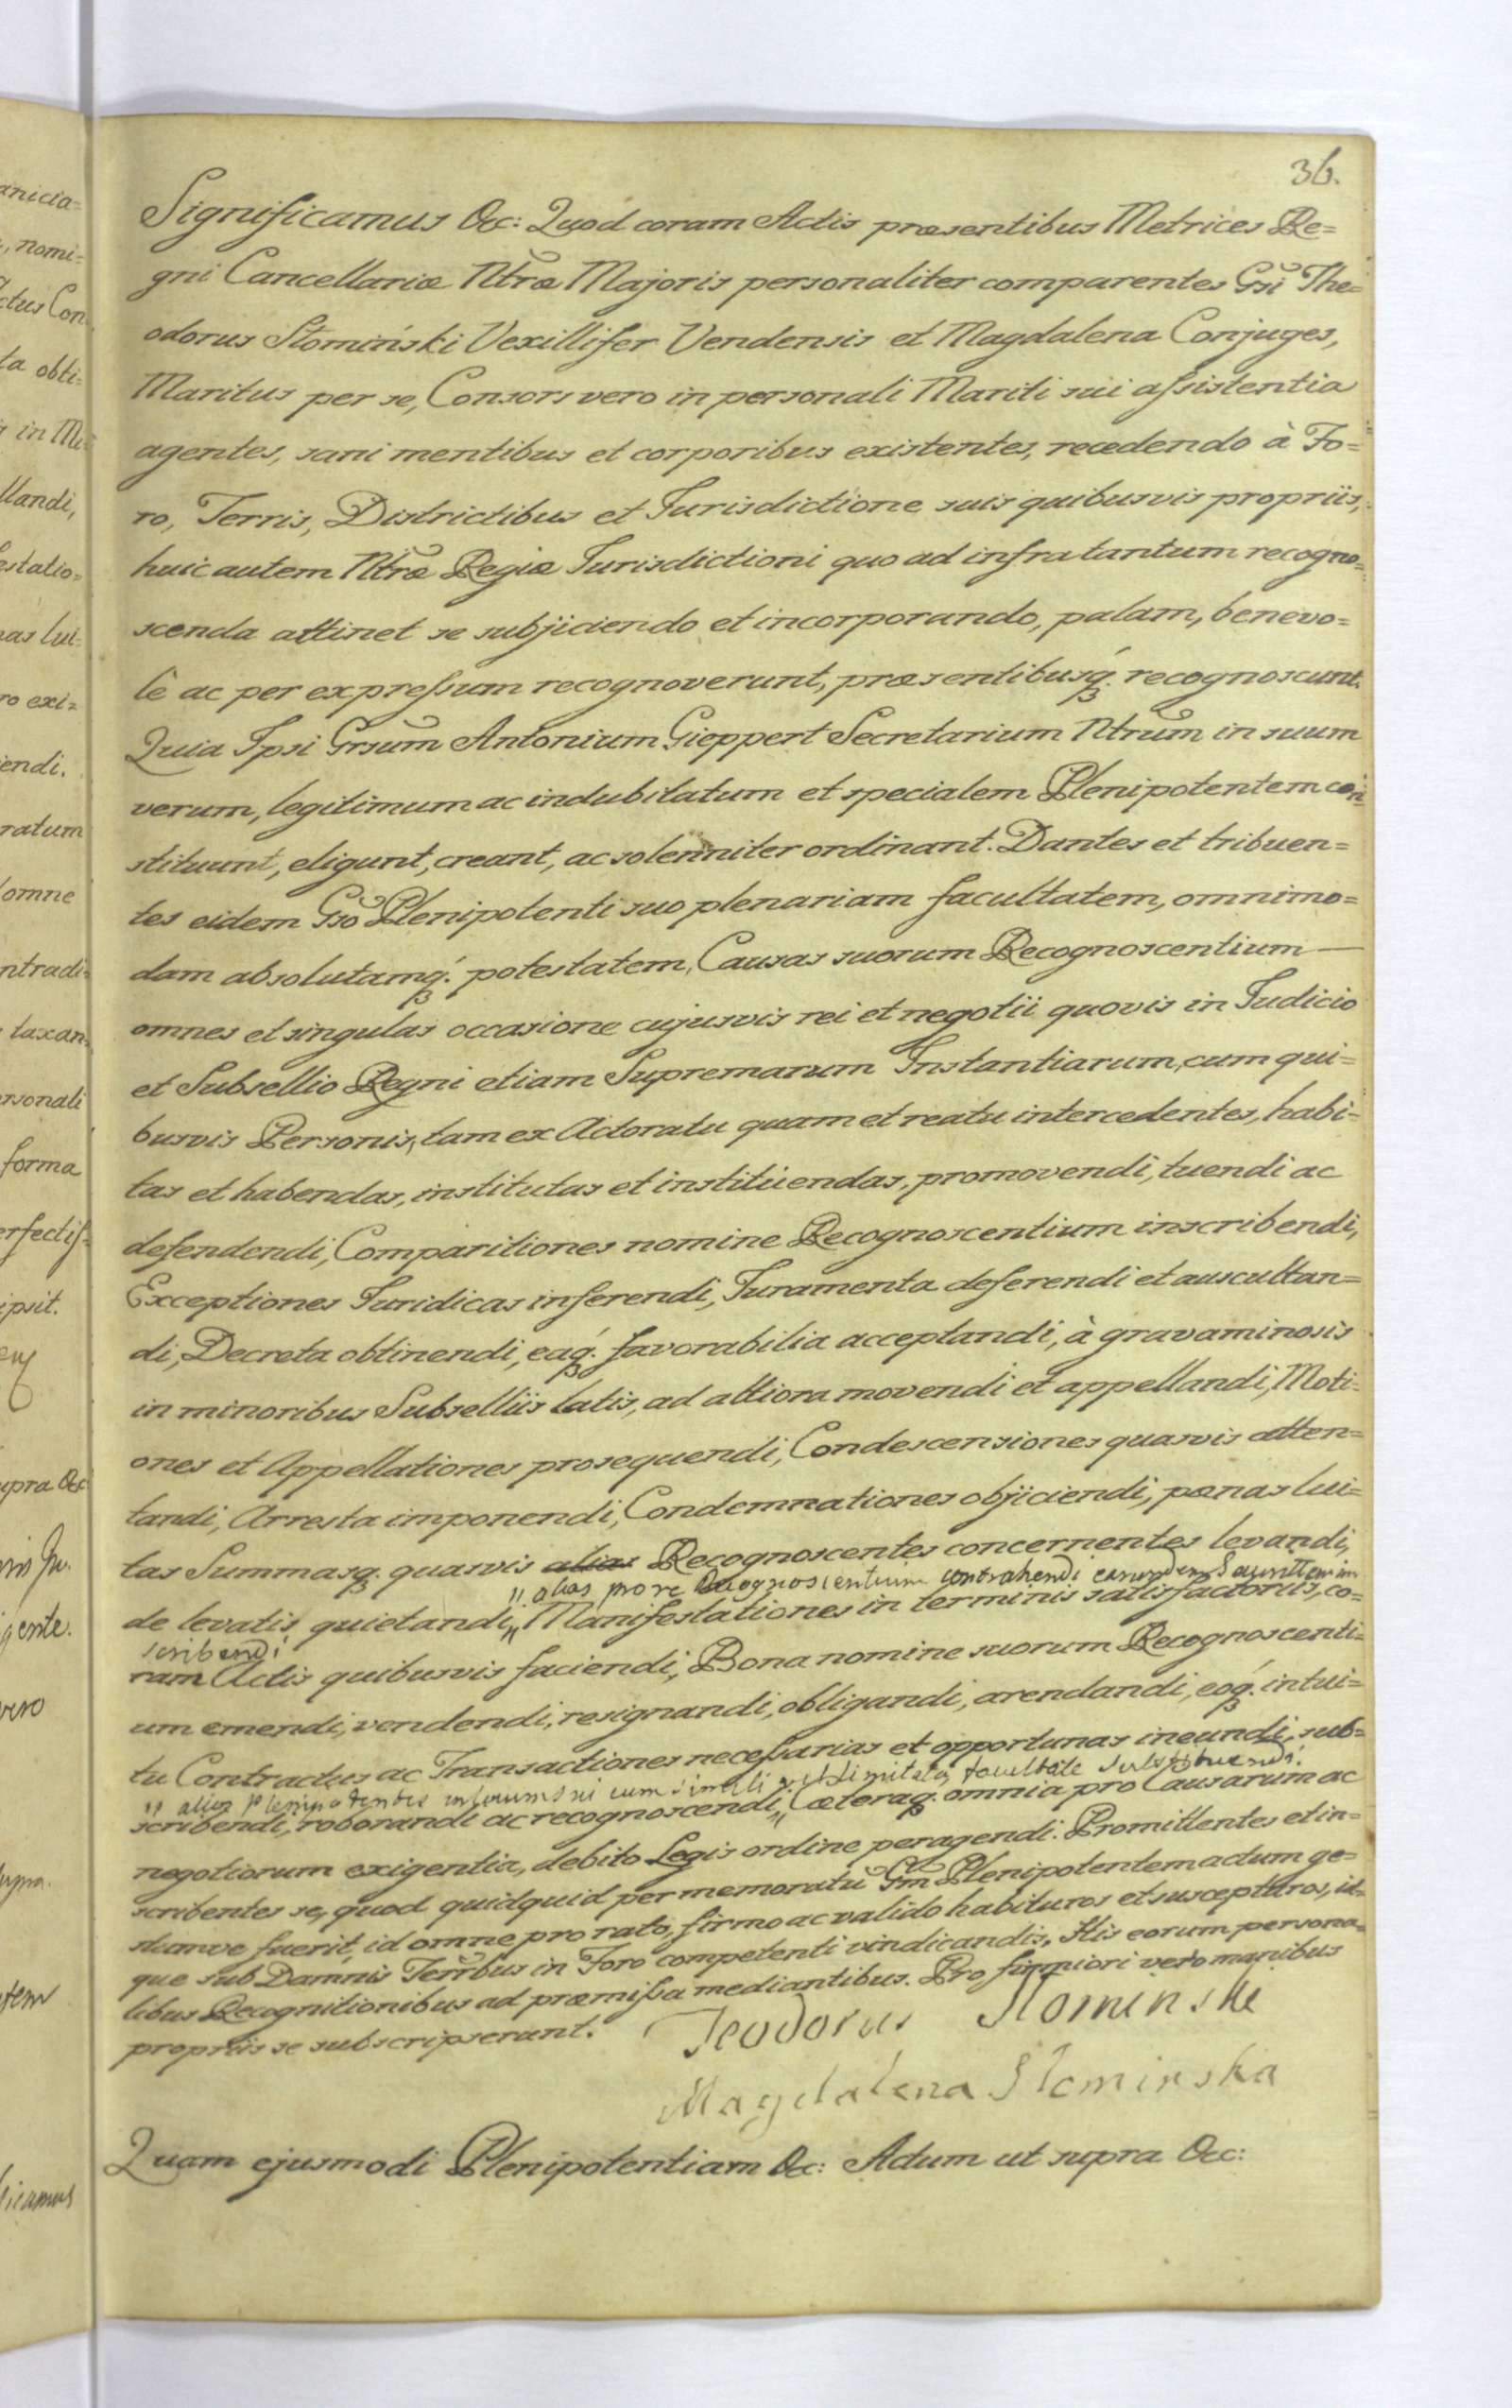 36.
Significamus &c: Quod coram Actis præsentibus Metrices Re=
gni Cancellariæ Ntræ Majoris personaliter comparentes Gsi The=
odorus Słomiński Vexillifer Vendensis et Magdalena Conjuges,
Maritus per se, Consors vero in personali Mariti sui aſsistentia
agentes, sani mentibus et corporibus existentes, recedendo à Fo=
ro, Terris, Districtibus et Jurisdictione suis quibusvis propriis,
huic autem Ntræ Regiæ Jurisdictioni quo ad infra tantum recogno=
scenda attinet se subjiciendo et incorporando, palam, benevo=
lè ac per expreſsum recognoverunt, præsentibusq́. recognoscunt.
Quia Ipsi Grsum Antonium Gieppert Secretarium Ntrum in suum
verum, legitimum ac indubitatum et specialem Plenipotentem con
stituunt, eligunt, creant, ac solenniter ordinant. Dantes et tribuen=
tes eidem Gso Plenipotenti suo plenariam facultatem, omnimo=
dam absolutamq́. potestatem, Causas suorum Recognoscentium —
omnes et singulas occasione cujusvis rei et negotii quovis in Judicio
et Subsellio Regni etiam Supremarum Instantiarum, cum qui=
busvis Personis, tam ex Actoratu quam et reatu intercedentes, habi=
tas et habendas, institutas et instituendas, promovendi, tuendi ac
defendendi, Comparitiones nomine Recognoscentium inscribendi,
Exceptiones Juridicas inferendi, Juramenta deferendi et auscultan=
di, Decreta obtinendi, eaq́. favorabilia acceptandi, à gravaminosis
in minoribus Subselliis latis, ad altiora movendi et appellandi, Moti=
ones et Appellationes prosequendi, Condescensiones quasvis atten=
tandi, Arresta imponendi, Condemnationes objiciendi, pœnas lui=
tas Summasq. quasvis alias Recognoscentes concernentes levandi,
" alias pro re Recognoscentium contrahendi easdem
de levatis quietandi," Manifestationes in terminis satisfactoriis, co=
scribendi
ram Actis quibusvis faciendi, Bona nomine suorum Recognoscenti=
um emendi, vendendi, resignandi, obligandi, arendandi, eoq́. intui=
tu Contractus ac Transactiones neceſsarias et opportunas ineundi, sub=
" alios Plenipotentes in locum sui cum simili vel limitata facultate substituendi
scribendi, roborandi ac recognoscendi," Cæteraq. omnia pro Causarum ac
negotiorum exigentia, debito Legis ordine peragendi. Promittentes et in=
scribentes se, quod quidquid per memoratū Gm Plenipotentem actum ge=
stumve fuerit, id omne pro rato, firmo ac valido habituros et suscepturos, id=
que sub Damnis Terribus in Foro competenti vindicandis. His eorum persona=
libus Recognitionibus ad præmiſsa mediantibus. Pro firmiori vero manibus
propriis se subscripserunt.
Teodorus Słominski
Magdalena Słominska
Quam ejusmodi Plenipotentiam &c: Actum ut supra &c: